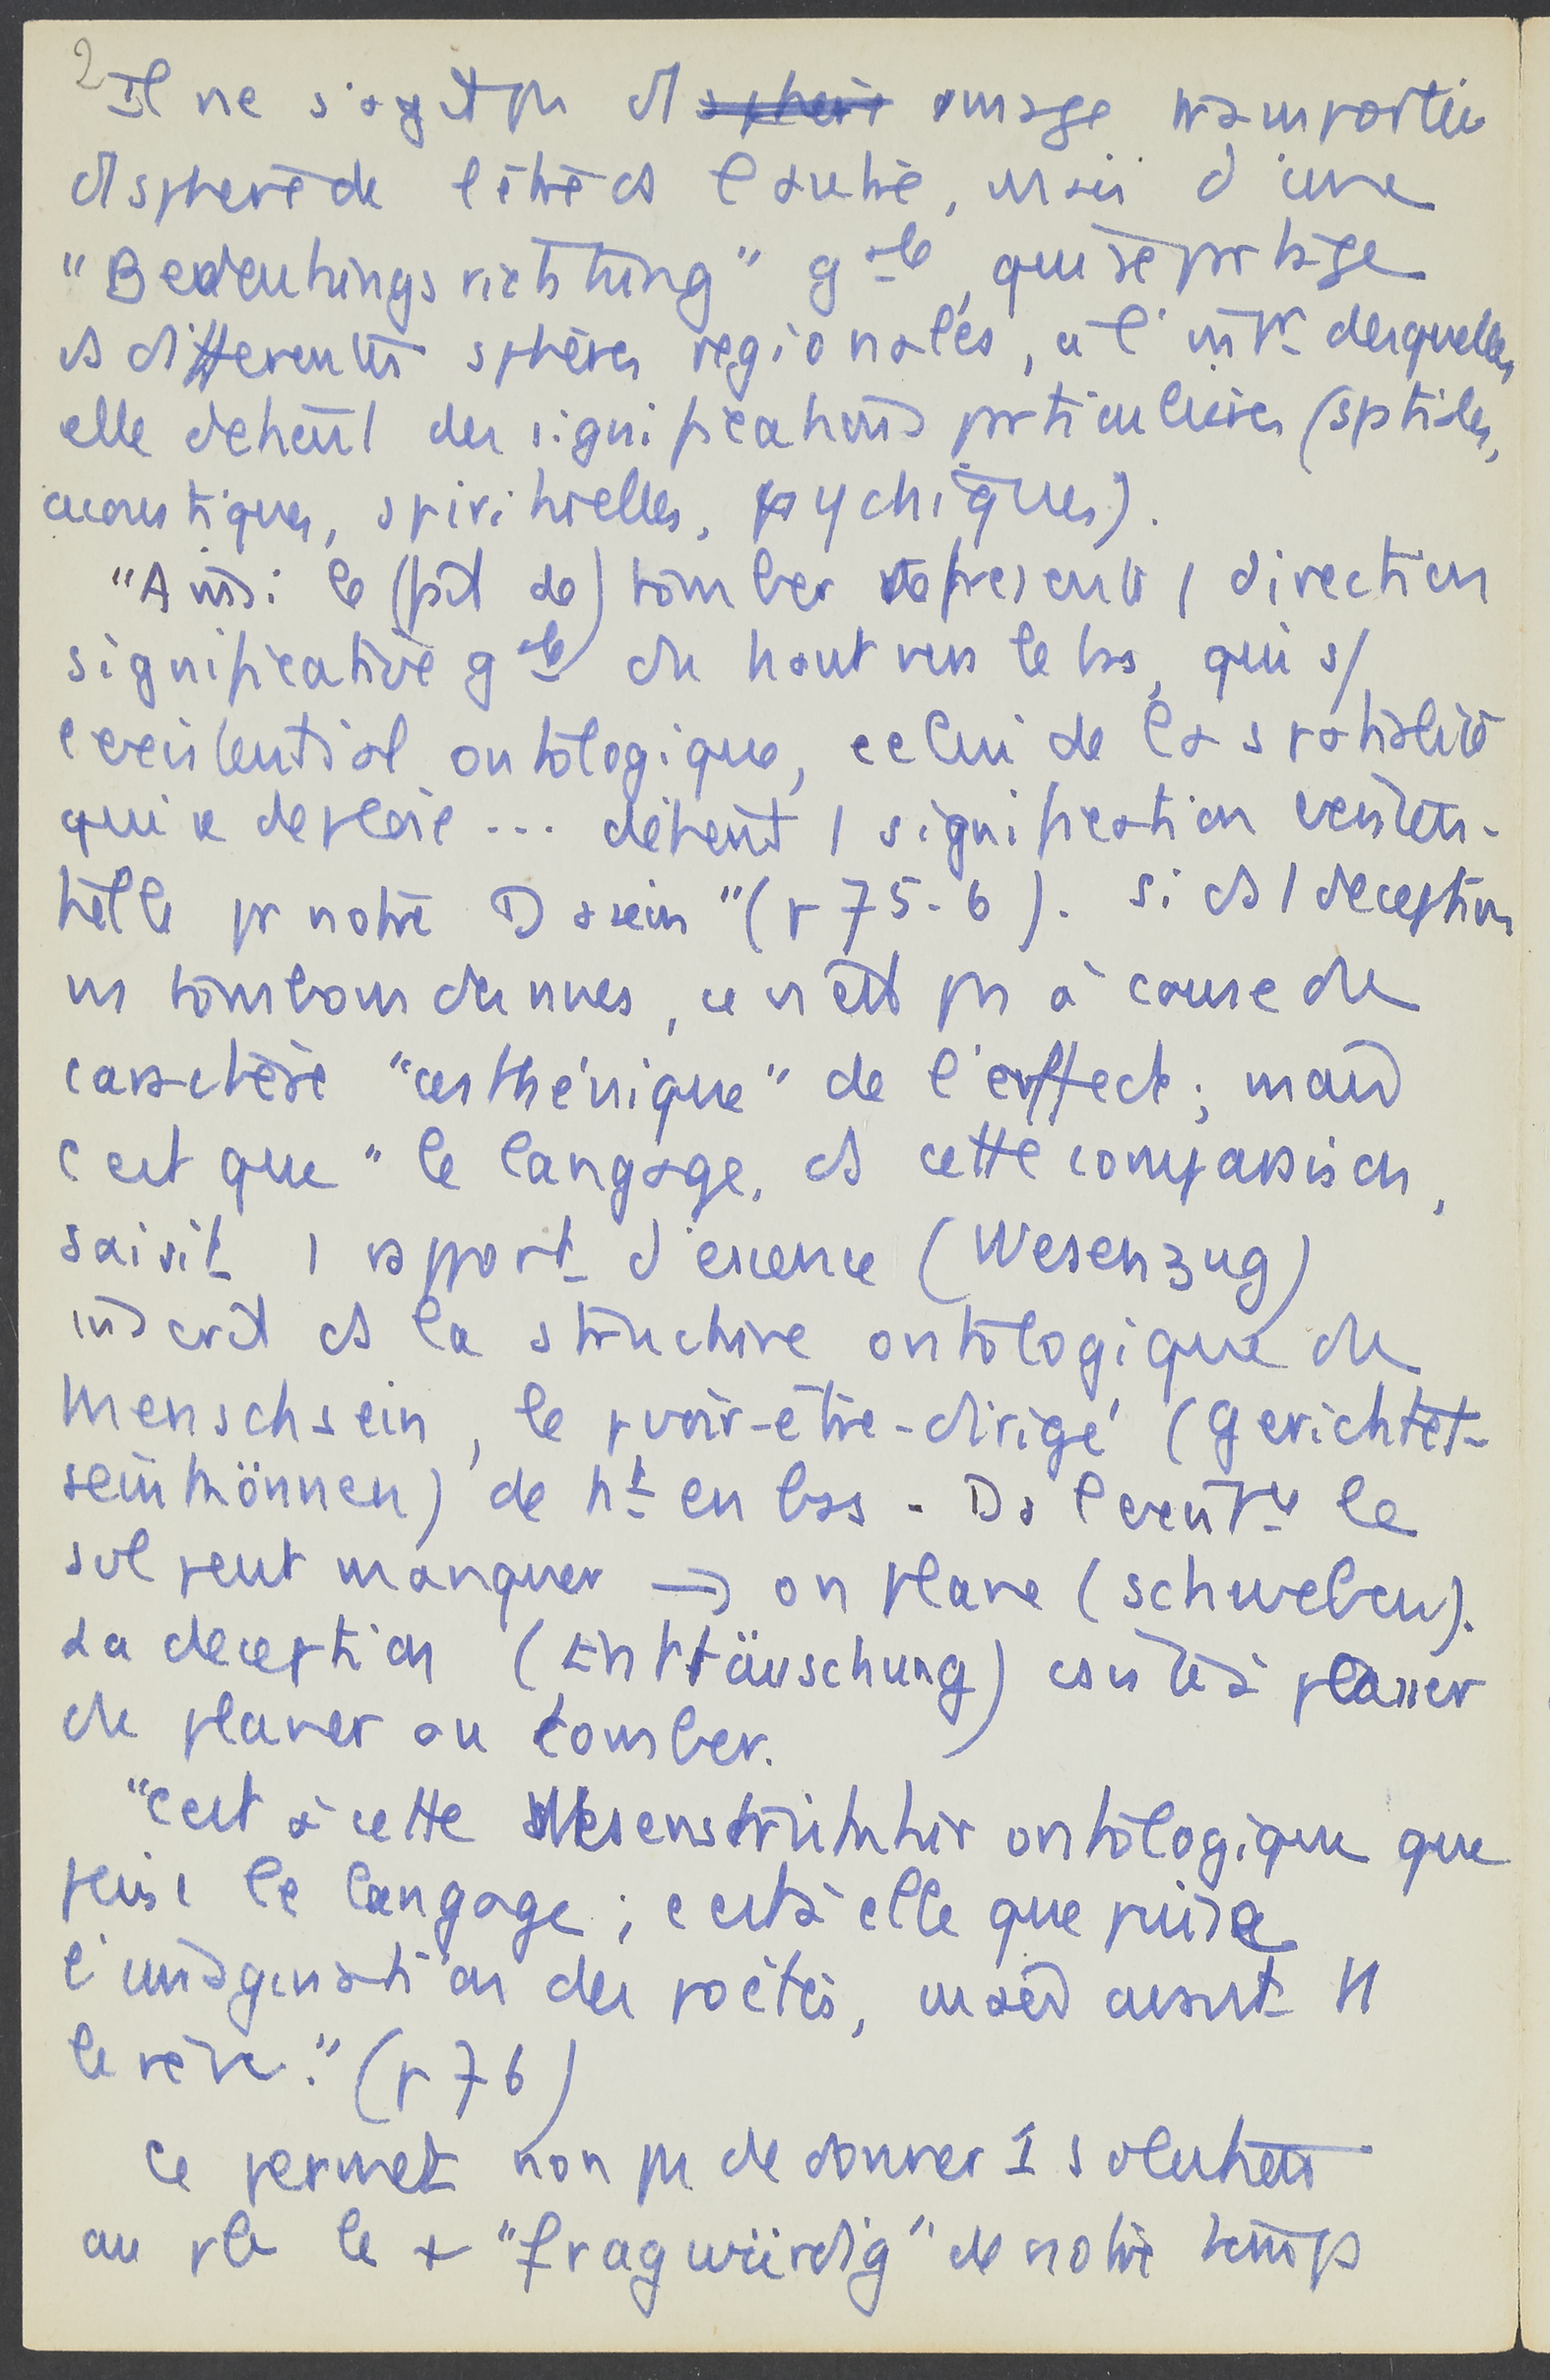 2
Il ne s'agit pas d'1 sphere image transportée
d'1 sphere de l'être ds l'autre, mais d'une
"Bedeutungsrichtung" gale, qui se partage
ds differentes spheres regionales, à l'intr desquelles
elle detient des significations particulieres (sptiales,
acoustiques, spirituelles, psychiques).
"Ainsi le (fait de) tomber represente 1 direction
significative gale du haut vers le bas, qui s/
l'existential ontologique, celui de la spatialité
qui se deploie ... détient 1 signification existen-
tielle pr notre Dasein" (p 75-6). Si ds 1 deception
ns tombons des nues, ce n'est pas à cause du
caractère "asthénique" de l'affect ; mais
c'est que "le langage, ds cette comparaison,
saisit 1 rapport d'essence (Wesenzug)
inscrit ds la structure ontologique du
Menschsein, le pvoir-être-dirigé (gerichtet-
seinkönnen) de ht en bas. Ds l'
le
sol peut manquer → on plane (schweben).
La deception (Enttäuschung) consiste à passer
du planer au tomber.
"C'est à cette Wesensstruktur ontologique que
puise le langage ; c'est à elle que puise
l'imagination des poètes, mais avant tt
le rêve." (p 76)
Ce permet non pas de donner 1 solution
au pb le + "fragwürdig" de notre temps